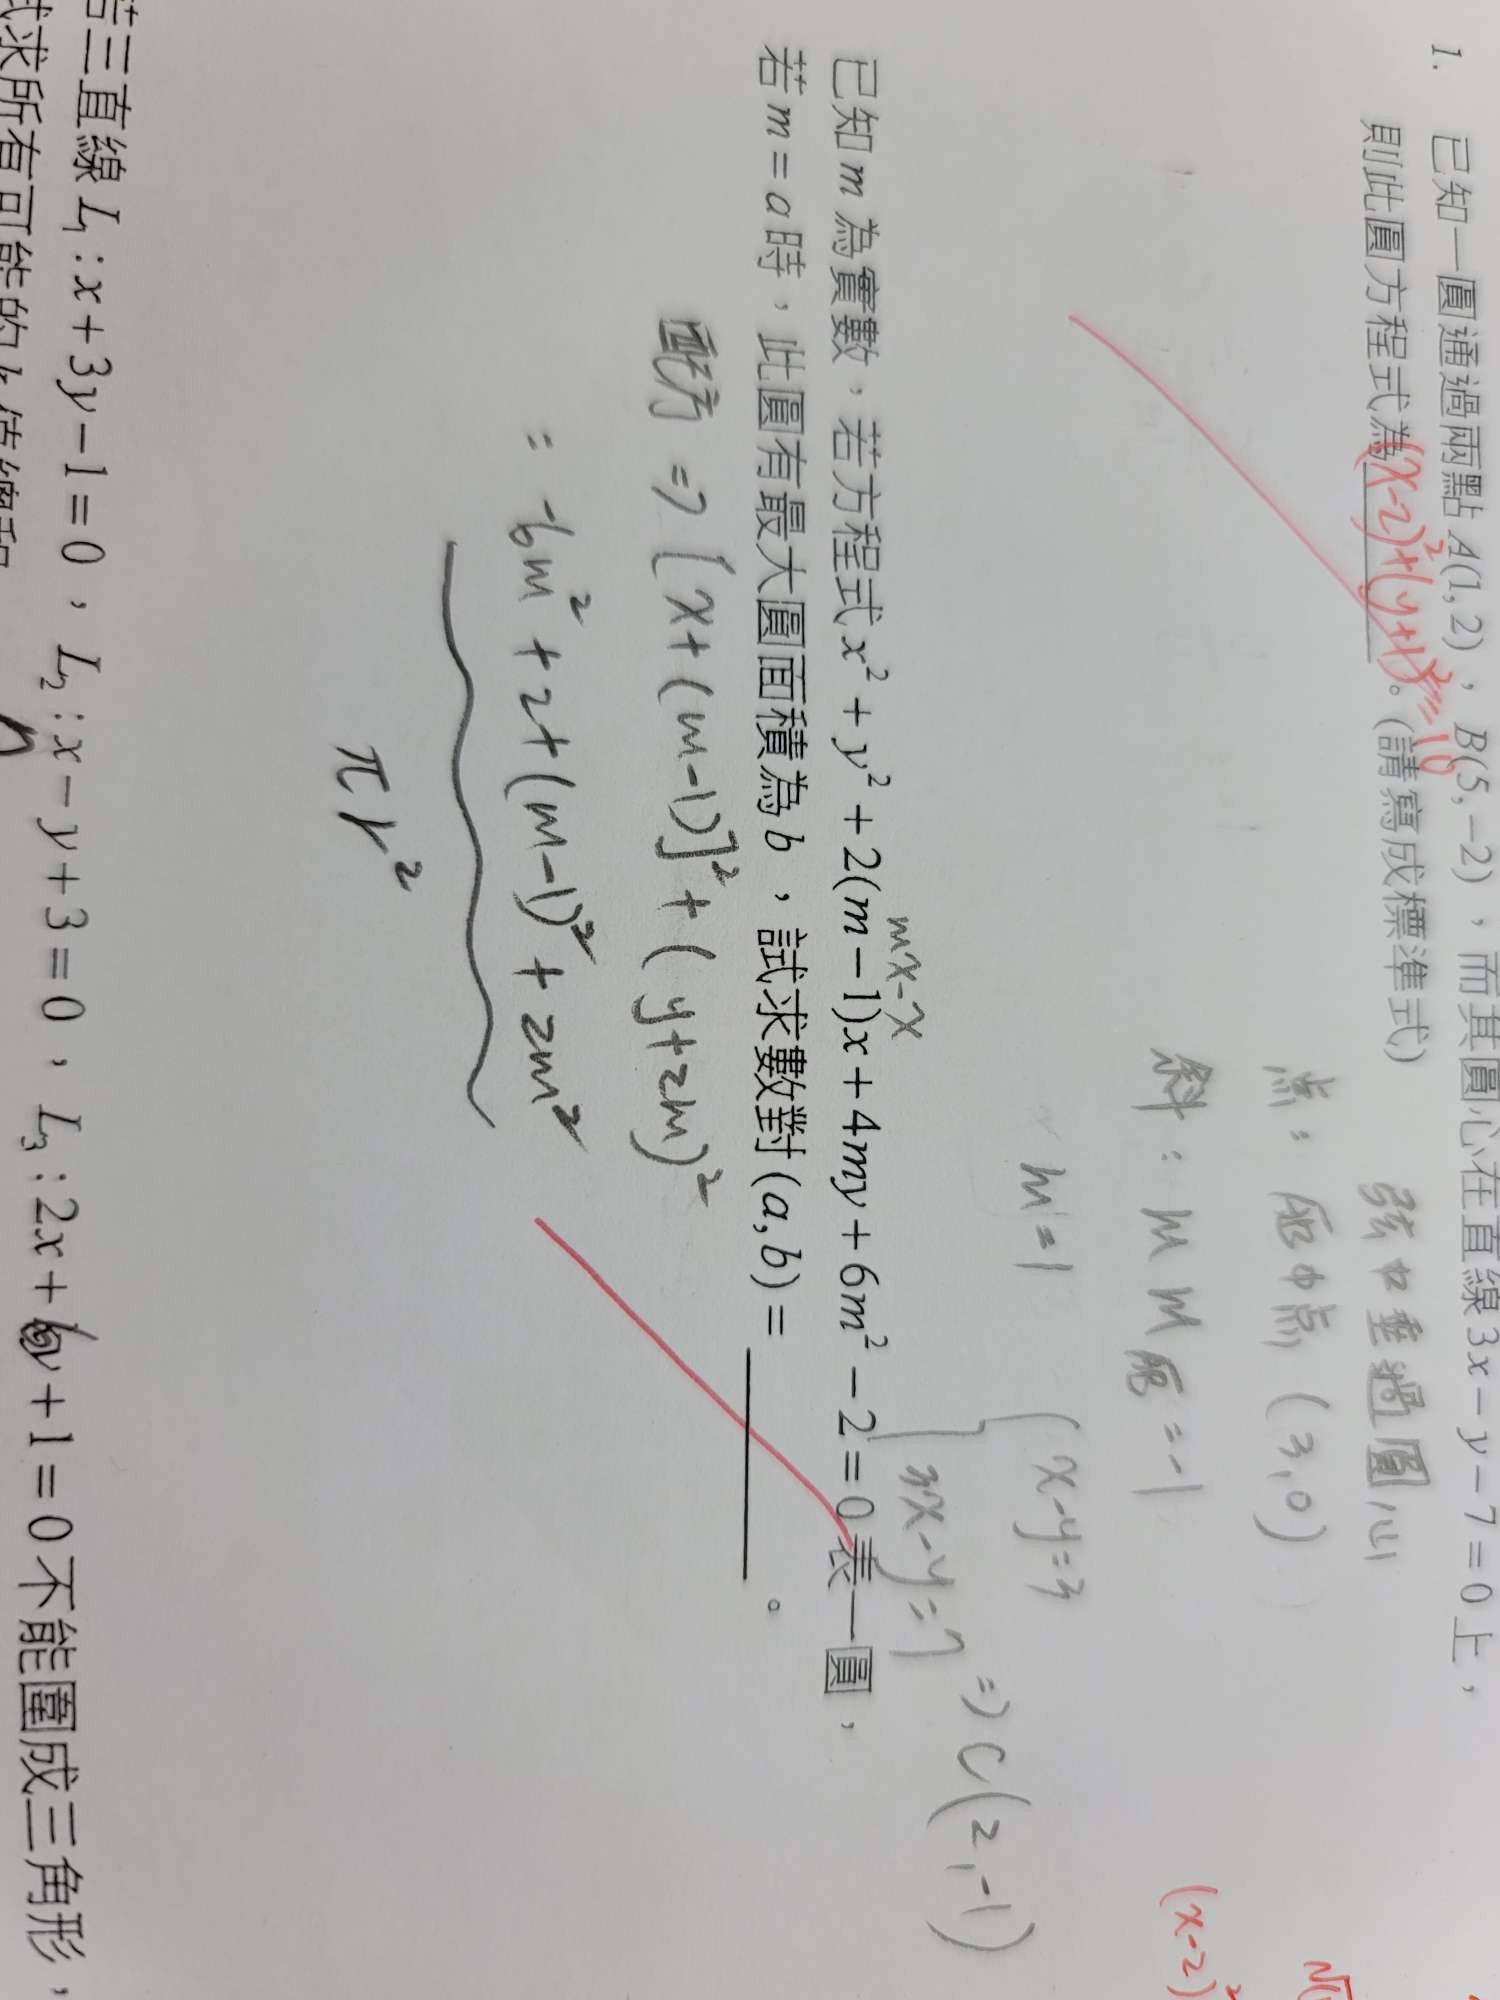 1. 已知一圓通過兩點 A(1,2)，B(5,−2)，而其圓心在直線 3x−y−7=0 上，
則此圓方程式為(x-2)²+(y+1)²=10。(請寫成標準式)
弦中垂過圓心
点：中点 (3,0)
斜：m = -1
m=1
{x-y=3
3x-y=7 => C(2,-1)
(x-2)²
mx-x
已知 m 為實數，若方程式 x²+y²+2(m−1)x+4my+6m²−2=0 表一圓，
若 m=a 時，此圓有最大圓面積為 b，試求數對 (a,b)= 。
配方 => [x+(m-1)]²+(y+2m)²
= -6m²+2+(m-1)²+2m²
πr²
若三直線 L₁:x+3y−1=0，L₂:x−y+3=0，L₃:2x+ y+1=0 不能圍成三角形，
試求所有可能的 k 值總和